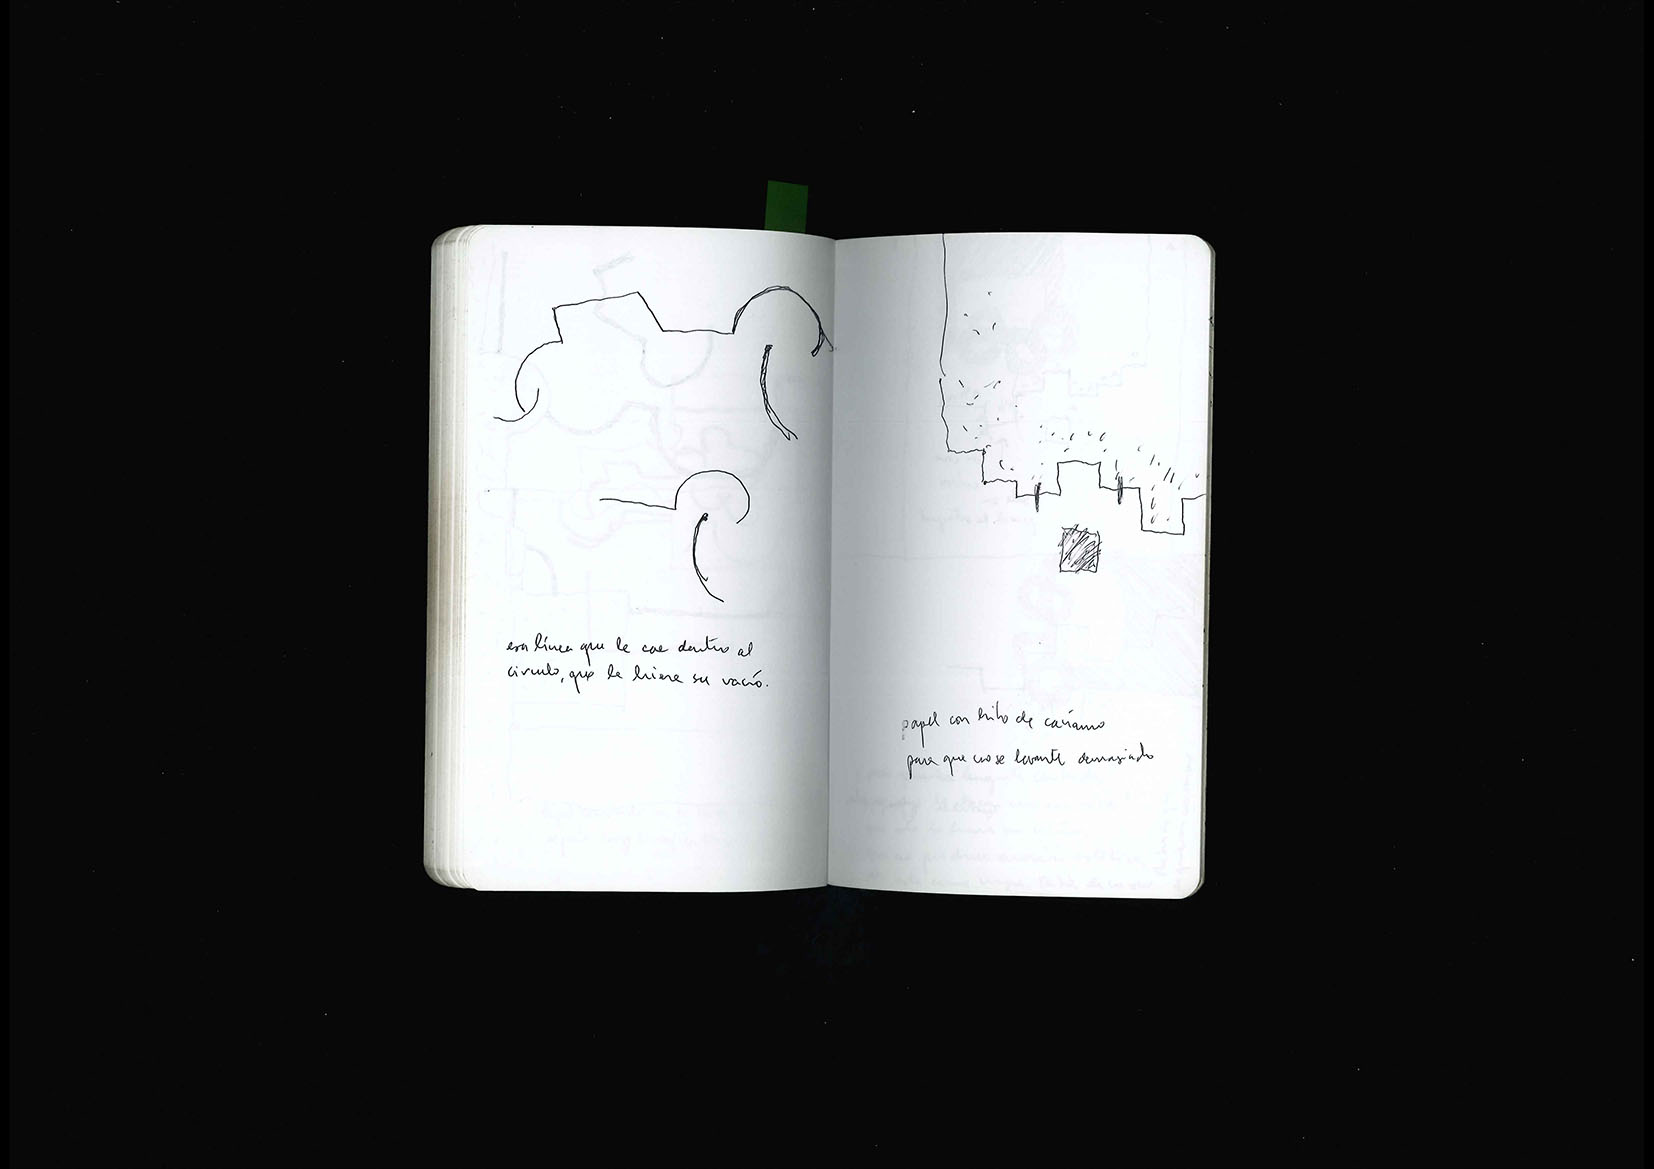 esa línea que le cae dentro al
círculo, que le hiere su vació.
papel con hilo de cáñamo
para que no se levante demasiado